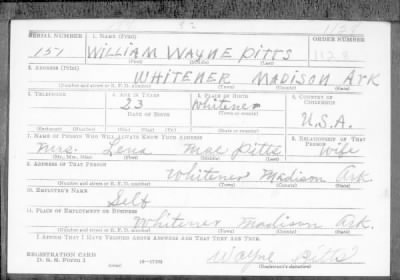 SERIAL NUMBER 1. NAME (Print) ORDER NUMBER
151 WILLIAM WAYNE PITTS
(First) (Middle) (Last)
2. ADDRESS (Print)
WHITENER MADISON ARK
(Number and street or R. F. D. number) (Town) (County) (State)
3. TELEPHONE 4. AGE IN YEARS 5. PLACE OF BIRTH 6. COUNTRY OF CITIZENSHIP
23 Whitener
DATE OF BIRTH (Town or county)
U.S.A.
(Exchange) (Number) (Mo.) (Day) (Yr.) (State or country)
7. NAME OF PERSON WHO WILL ALWAYS KNOW YOUR ADDRESS 8. RELATIONSHIP OF THAT PERSON
Mrs. Lena Mae Pitts Wife
(Mr., Mrs., Miss) (First) (Middle) (Last)
9. ADDRESS OF THAT PERSON
Whitener Madison Ark.
(Number and street or R. F. D. number) (Town) (County) (State)
10. EMPLOYER'S NAME
Self
11. PLACE OF EMPLOYMENT OR BUSINESS
Whitener Madison Ark.
(Number and street or R. F. D. number) (Town) (County) (State)
I AFFIRM THAT I HAVE VERIFIED ABOVE ANSWERS AND THAT THEY ARE TRUE.
Wayne Pitts
REGISTRATION CARD
D. S. S. Form 1 (Registrant's signature)